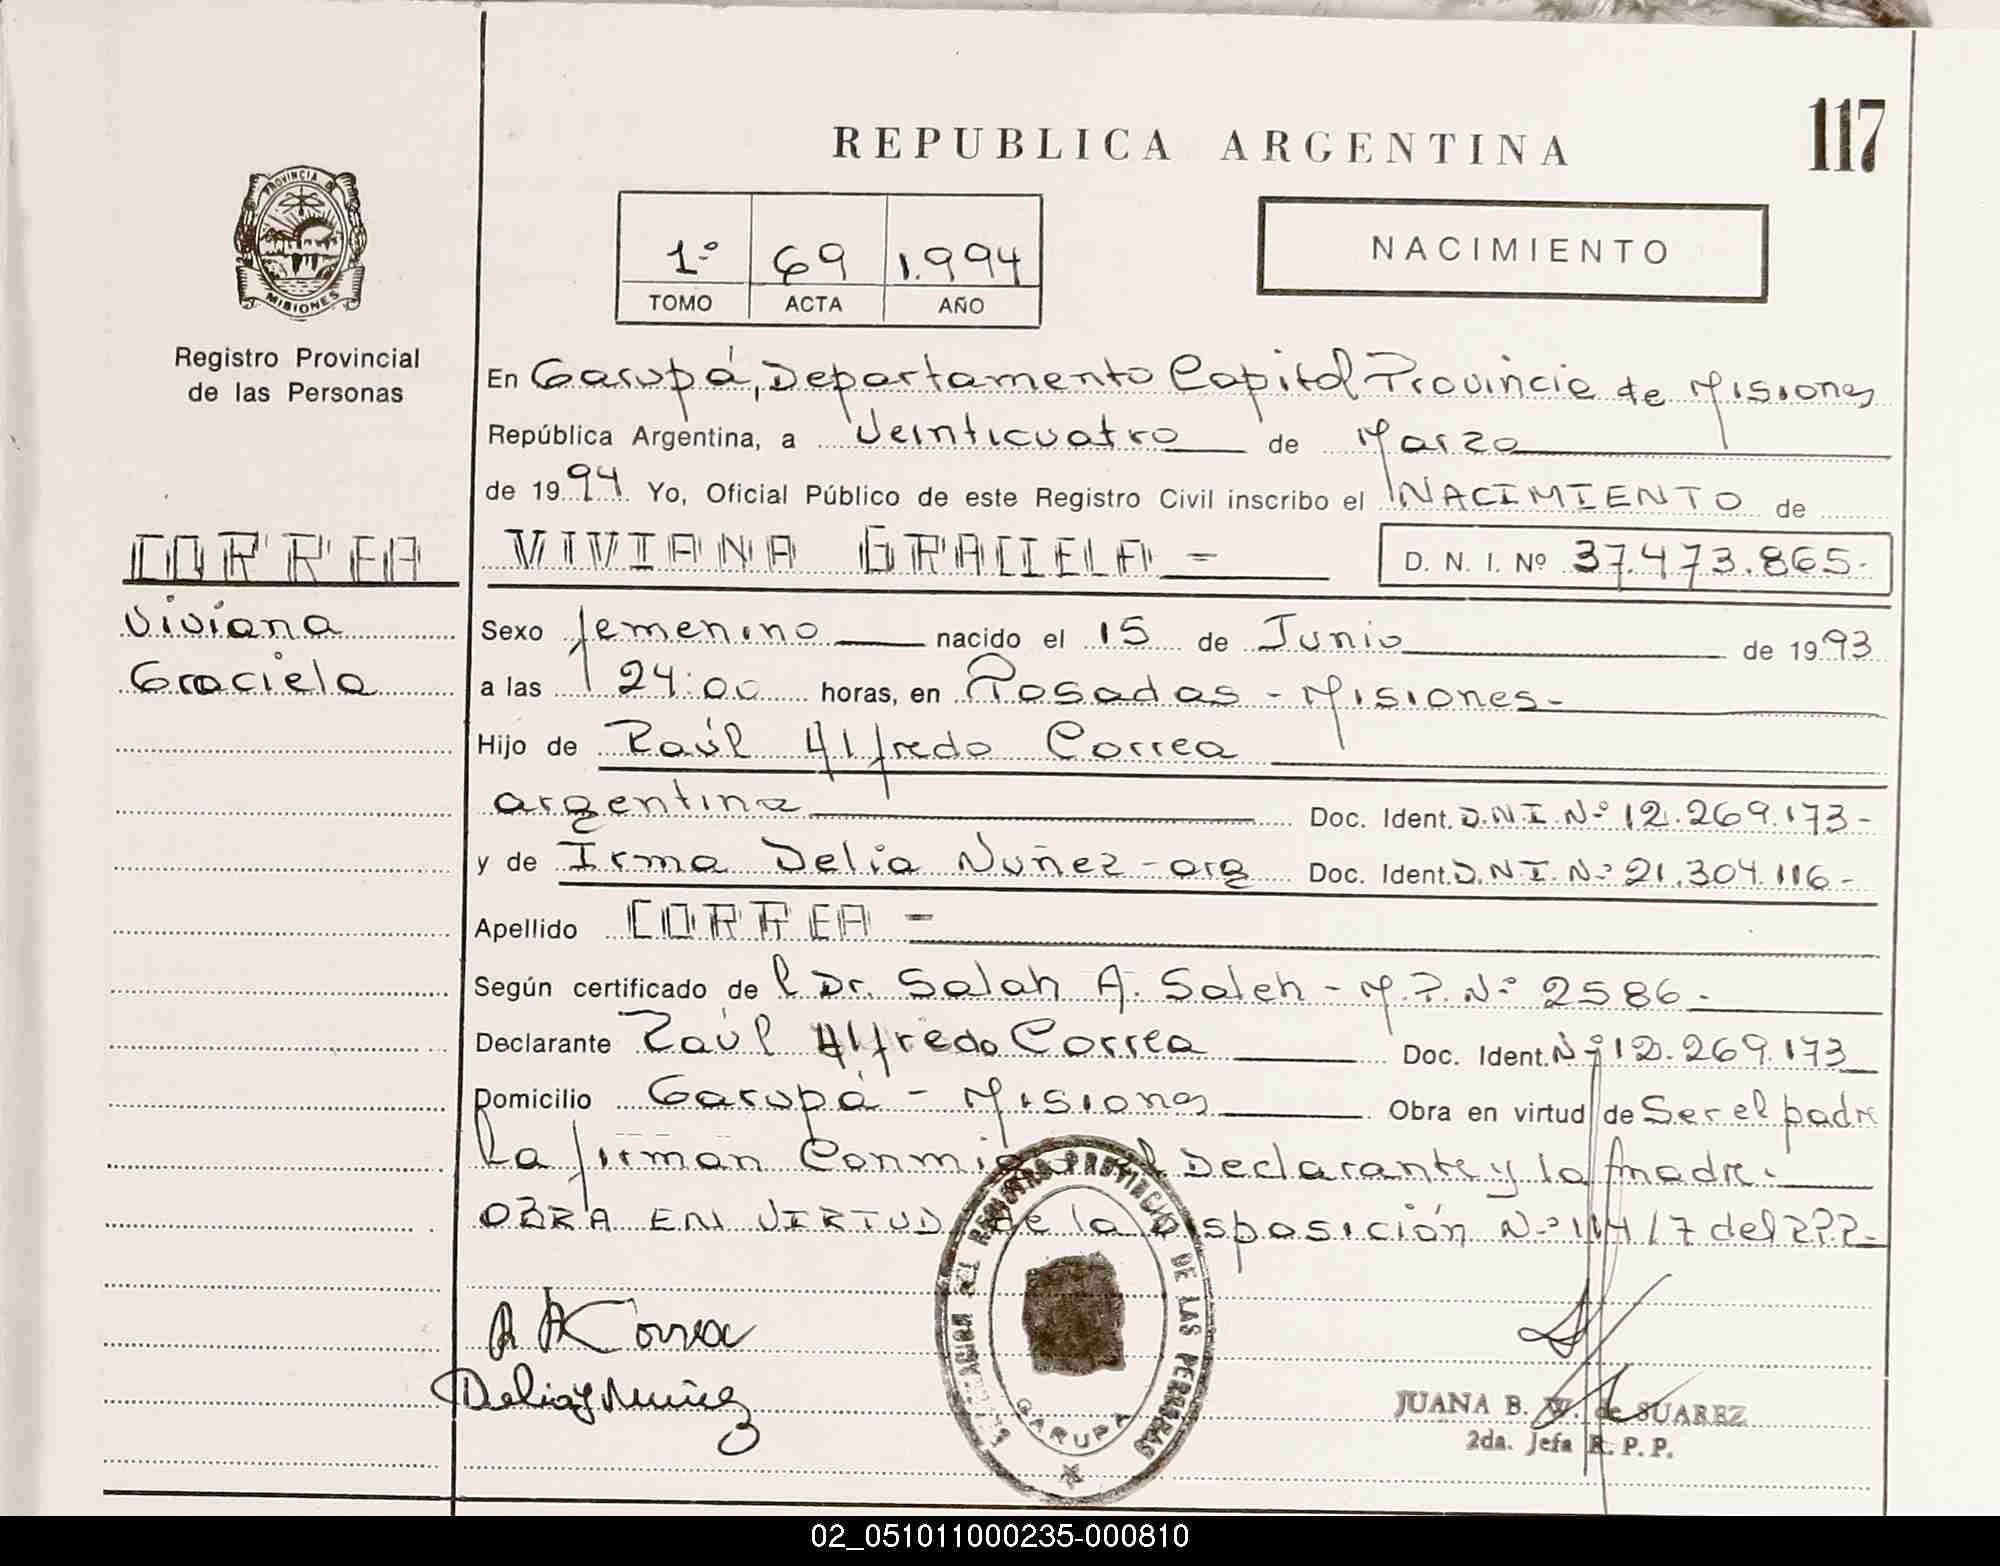 117
REPUBLICA ARGENTINA
PROVINCIA DE
MISIONES
Registro Provincial
de las Personas
1º 69 1.994
TOMO ACTA AÑO
NACIMIENTO
En Garupá, Departamento Capital Provincia de Misiones
República Argentina, a Veinticuatro de Marzo
de 1994 Yo, Oficial Público de este Registro Civil inscribo el NACIMIENTO de
CORREA
VIVIANA GRACIELA -
D. N. I. Nº 37.473.865-
Viviana
Graciela
Sexo femenino nacido el 15 de Junio de 1993
a las 24:00 horas, en Posadas - Misiones-
Hijo de Raúl Alfredo Correa
argentina Doc. Ident. D.N.I. Nº 12.269.173-
y de Irma Delia Nuñez - arg Doc. Ident. D.N.I. Nº 21.304.116-
Apellido CORREA -
Según certificado de l Dr. Salah A. Saleh - M.P. Nº 2586.-
Declarante Raúl Alfredo Correa Doc. Ident. Nº 12.269.173
Domicilio Garupá - Misiones Obra en virtud de Ser el padre
La firman Conmigo el Declarante y la madre.
OBRA EN VIRTUD de la Disposición Nº 114/7 del 222-
R A Correa
Delia Nuñez
DEL REGISTRO PROVINCIAL DE LAS PERSONAS
GARUPA
JUANA B. W. de SUAREZ
2da. Jefa R. P. P.
02_051011000235-000810